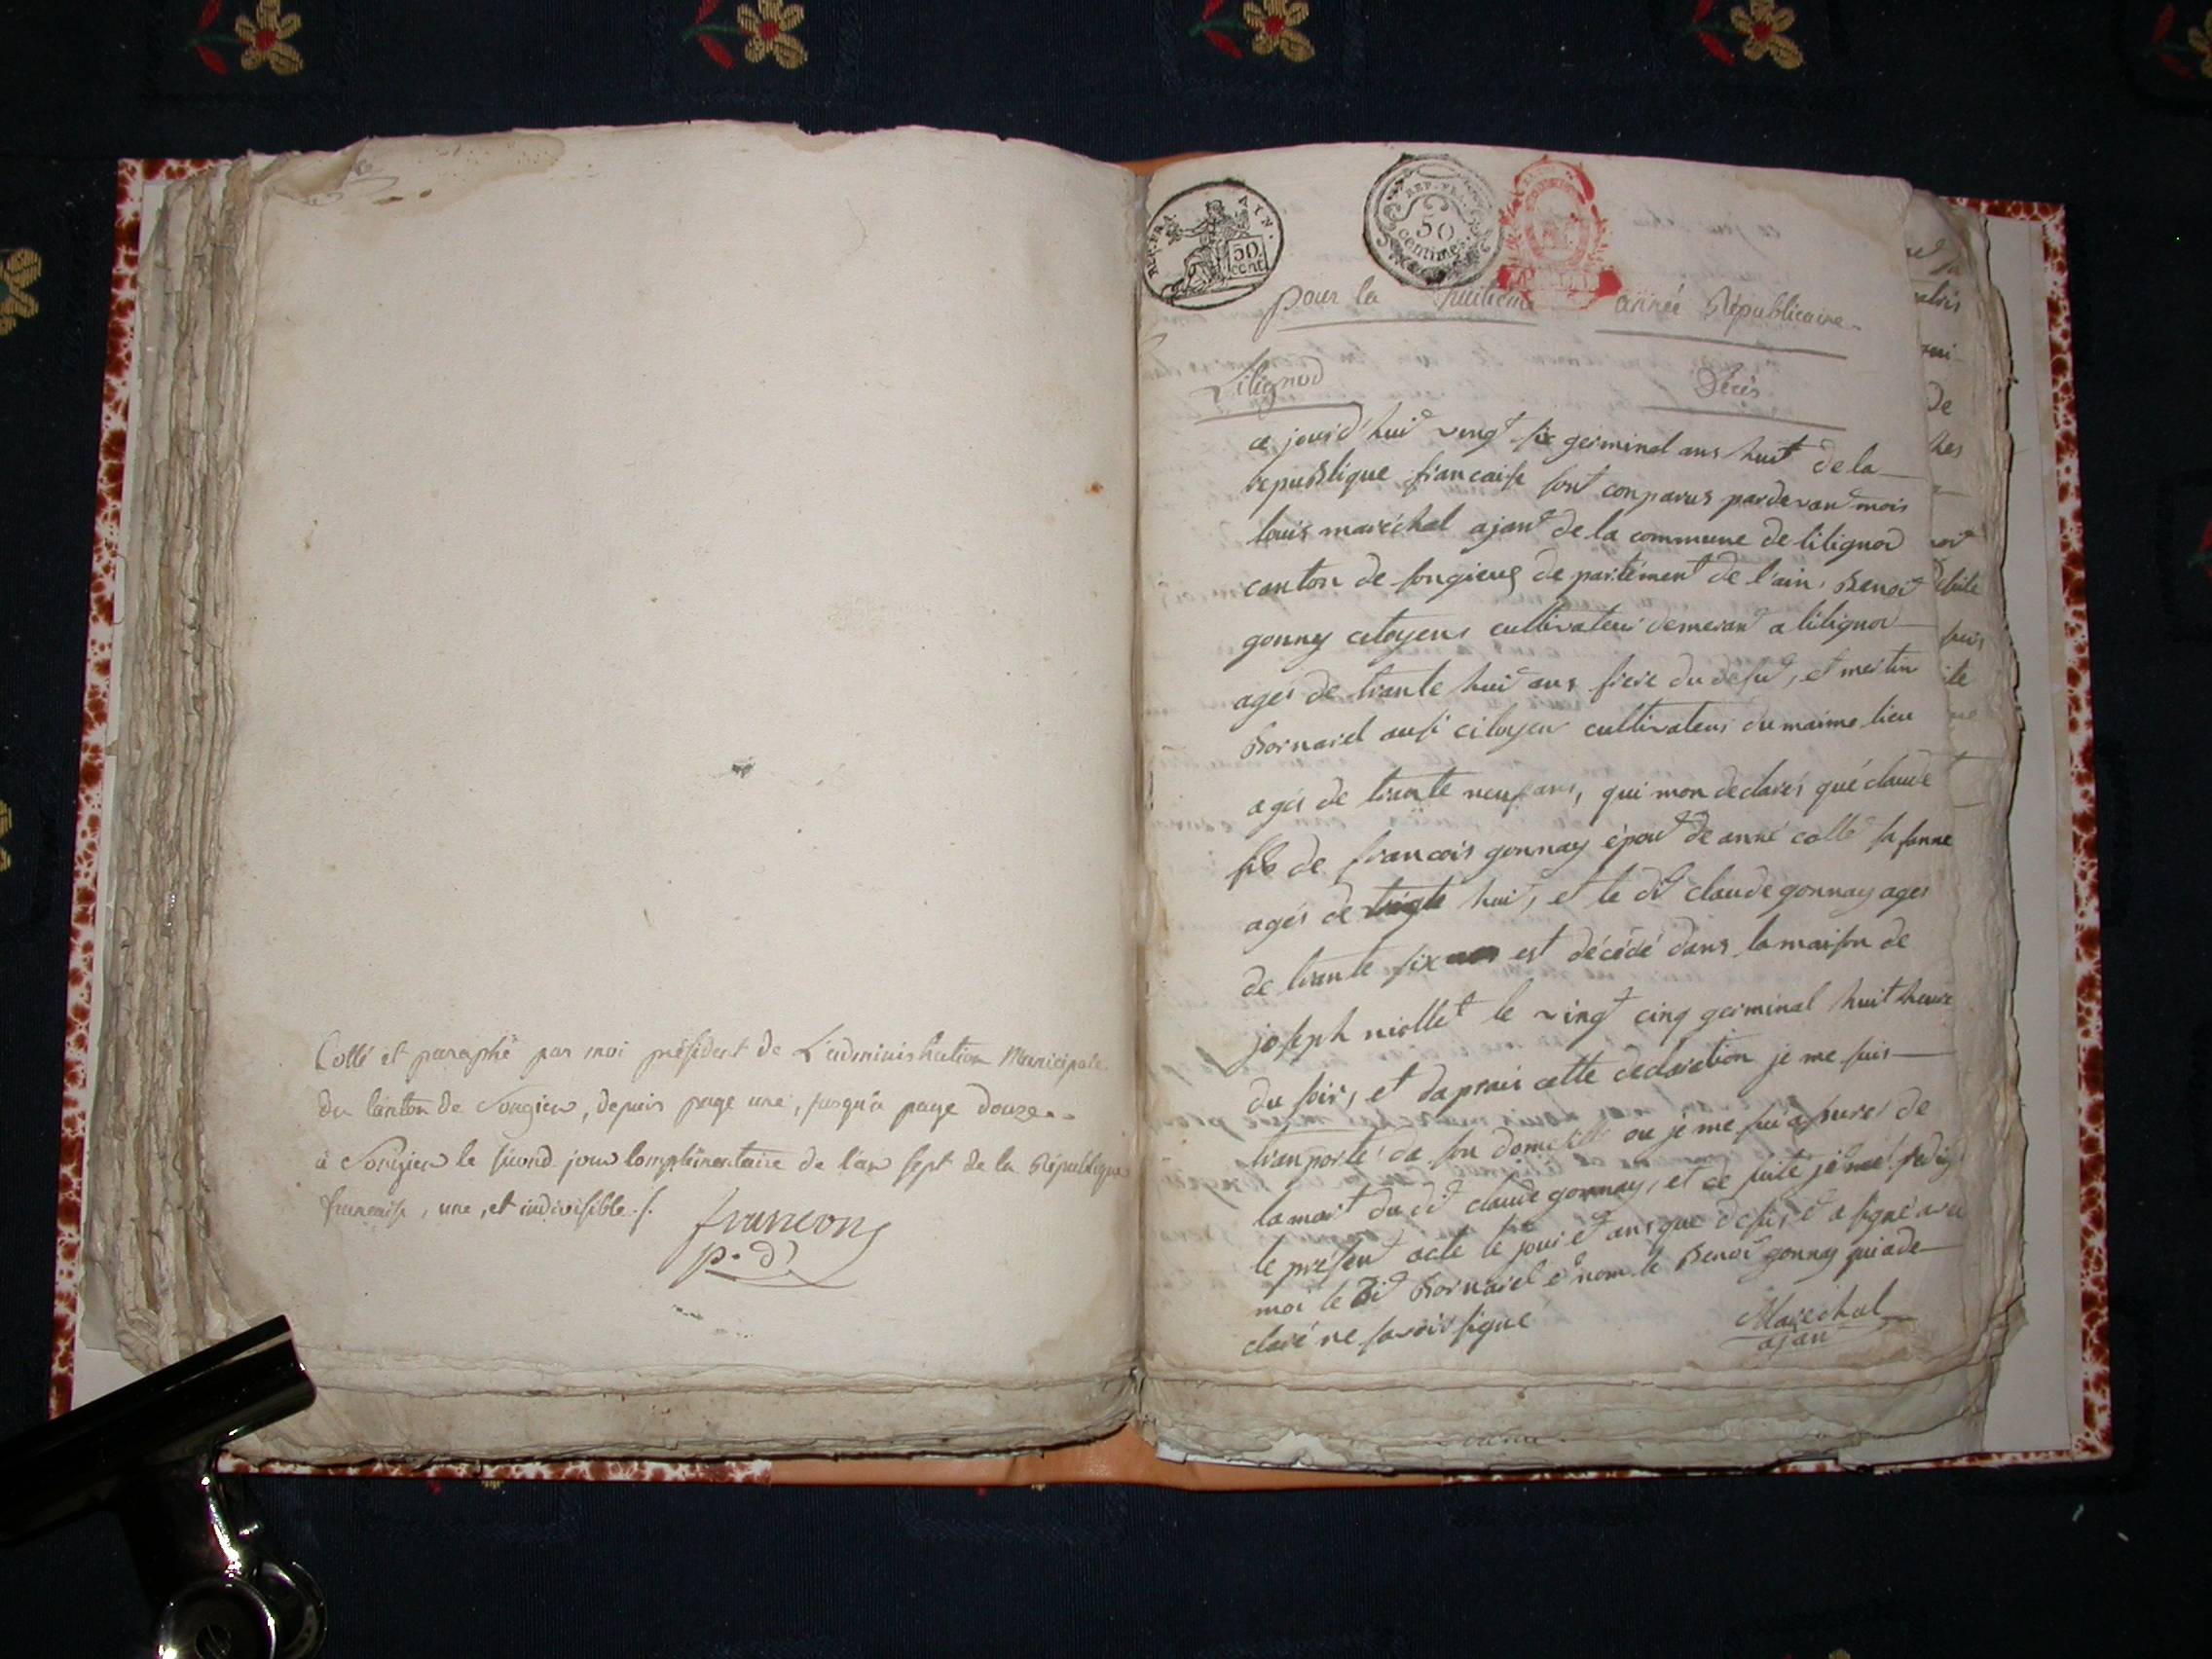 Cotté et paraphé par moi président de L'administration Municipale
du Canton de Songieu, depuis page une, jusqu'à page douze..
à Songieu le second jour Complémentaire de l'an sept de la République
française, une, et indivisible./.
françon
p.d^t
REP. FRA. AIN.
50 cent
REP. FRA.
50 centimes.
pour la huitieme année Républicaine.
Lilignod Décès
ce jourd'huit vingt six germinal ans huit de la
republique francaise sont conparus pardevant mois
louis maréchal ajant de la commune de lilignod
canton de songieux de partément de l'ain, Benoit
gonnay citoyens cultivateur demerant a lilignod
agés de trante huit ans frere du defut, et mertin
Bornarel ausi citoyen cultivateur du maime lieu
agés de trante neuf ans, qui mon declarés qué claude
fils de francois gonnay épout de anné collet sa fanne
agés de huit, et le dit claude gonnay agés
de trante six est décédé dans la maison de
joseph niollet le vingt cinq germinal huit heure
du soir, et daprais catte declaration je me suis
tranporté da son domesille ou je me sui asurer de
la mort du dit claude gonnay, et de suite jé redigé
le present acte le jour et ans que desus et a signé avec
moi le dit Bornarel et nom le Benoit gonnay qui a de
claré ne savoir signe
Marechal
ajan